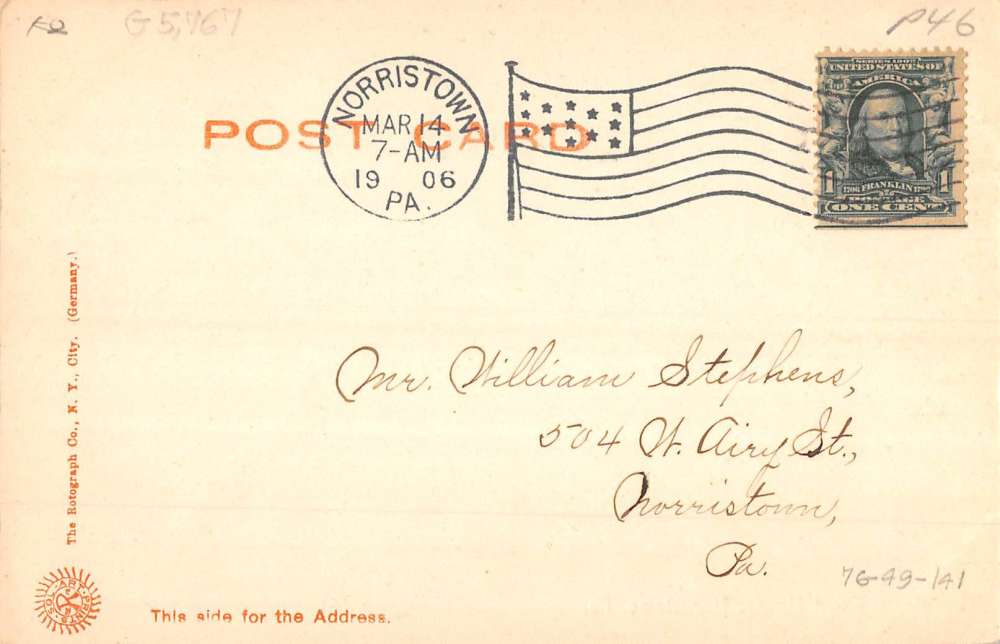 G 5,767
P46
NORRISTOWN
MAR 14
7-AM
19 06
PA.
SERIES 1902
UNITED STATES OF
AMERICA
1706 FRANKLIN 1790
1 1
POSTAGE
ONE CENT
POST CARD
The Rotograph Co., N. Y., City. (Germany.)
Mr. William Stephens,
504 W. Airy St.,
Norristown,
Pa.
76-49-141
SOL-ART PRINTS
This side for the Address.